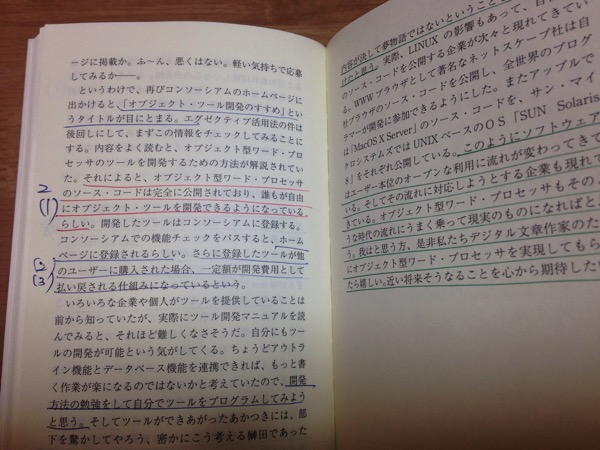 ージに掲載か。ふーん、悪くはない。軽い気持ちで応募
してみるか――。
というわけで、再びコンソーシアムのホームページに
出かけると、「オブジェクト・ツール開発のすすめ」とい
うタイトルが目にとまる。エグゼクティブ活用法の件は
後回しにして、まずこの情報をチェックしてみることに
する。内容をよく読むと、オブジェクト型ワード・プロ
セッサのツールを開発するための方法が解説されてい
た。それによると、オブジェクト型ワード・プロセッサ
のソース・コードは完全に公開されており、誰もが自由
にオブジェクト・ツールを開発できるようになっている
らしい。開発したツールはコンソーシアムに登録する。
コンソーシアムでの機能チェックをパスすると、ホーム
ページに登録されるらしい。さらに登録したツールが他
のユーザーに購入された場合、一定額が開発費用として
払い戻される仕組みになっているという。
いろいろな企業や個人がツールを提供していることは
前から知っていたが、実際にツール開発マニュアルを読
んでみると、それほど難しくなさそうだ。自分にもツー
ルの開発が可能という気がしてくる。ちょうどアウトラ
イン機能とデータベース機能を連携できれば、もっと書
く作業が楽になるのではないかと考えていたので、開発
方法の勉強をして自分でツールをプログラムしてみよう
と思う。そしてツールができあがったあかつきには、部
下を驚かしてやろう、密かにこう考える榊田であった
2
(1)
(2)
(3)
内容が決して夢物語ではないということ
けたと思う。実際、LINUXの影響もあって、自
のソース・コードを公開する企業が次々と現れてきてい
る。WWWブラウザとして著名なネットスケープ社は自
社ブラウザのソース・コードを公開し、全世界のプログ
ラマーが開発に参加できるようにした。またアップルで
は「MacOS X Server」のソース・コードを、サン・マイ
クロシステムズではUNIXベースのOS「SUN Solaris
8」をそれぞれ公開している。このようにソフトウェア
はユーザー本位のオープンな利用に流れが変わってきて
いる。そしてその流れに対応しようとする企業も現れて
きている。オブジェクト型ワード・プロセッサもその
うな時代の流れにうまく乗って現実のものになればと
う。我はと思う方、是非私たちデジタル文章作家のた
にオブジェクト型ワード・プロセッサを実現してもら
たら嬉しい。近い将来そうなることを心から期待したい